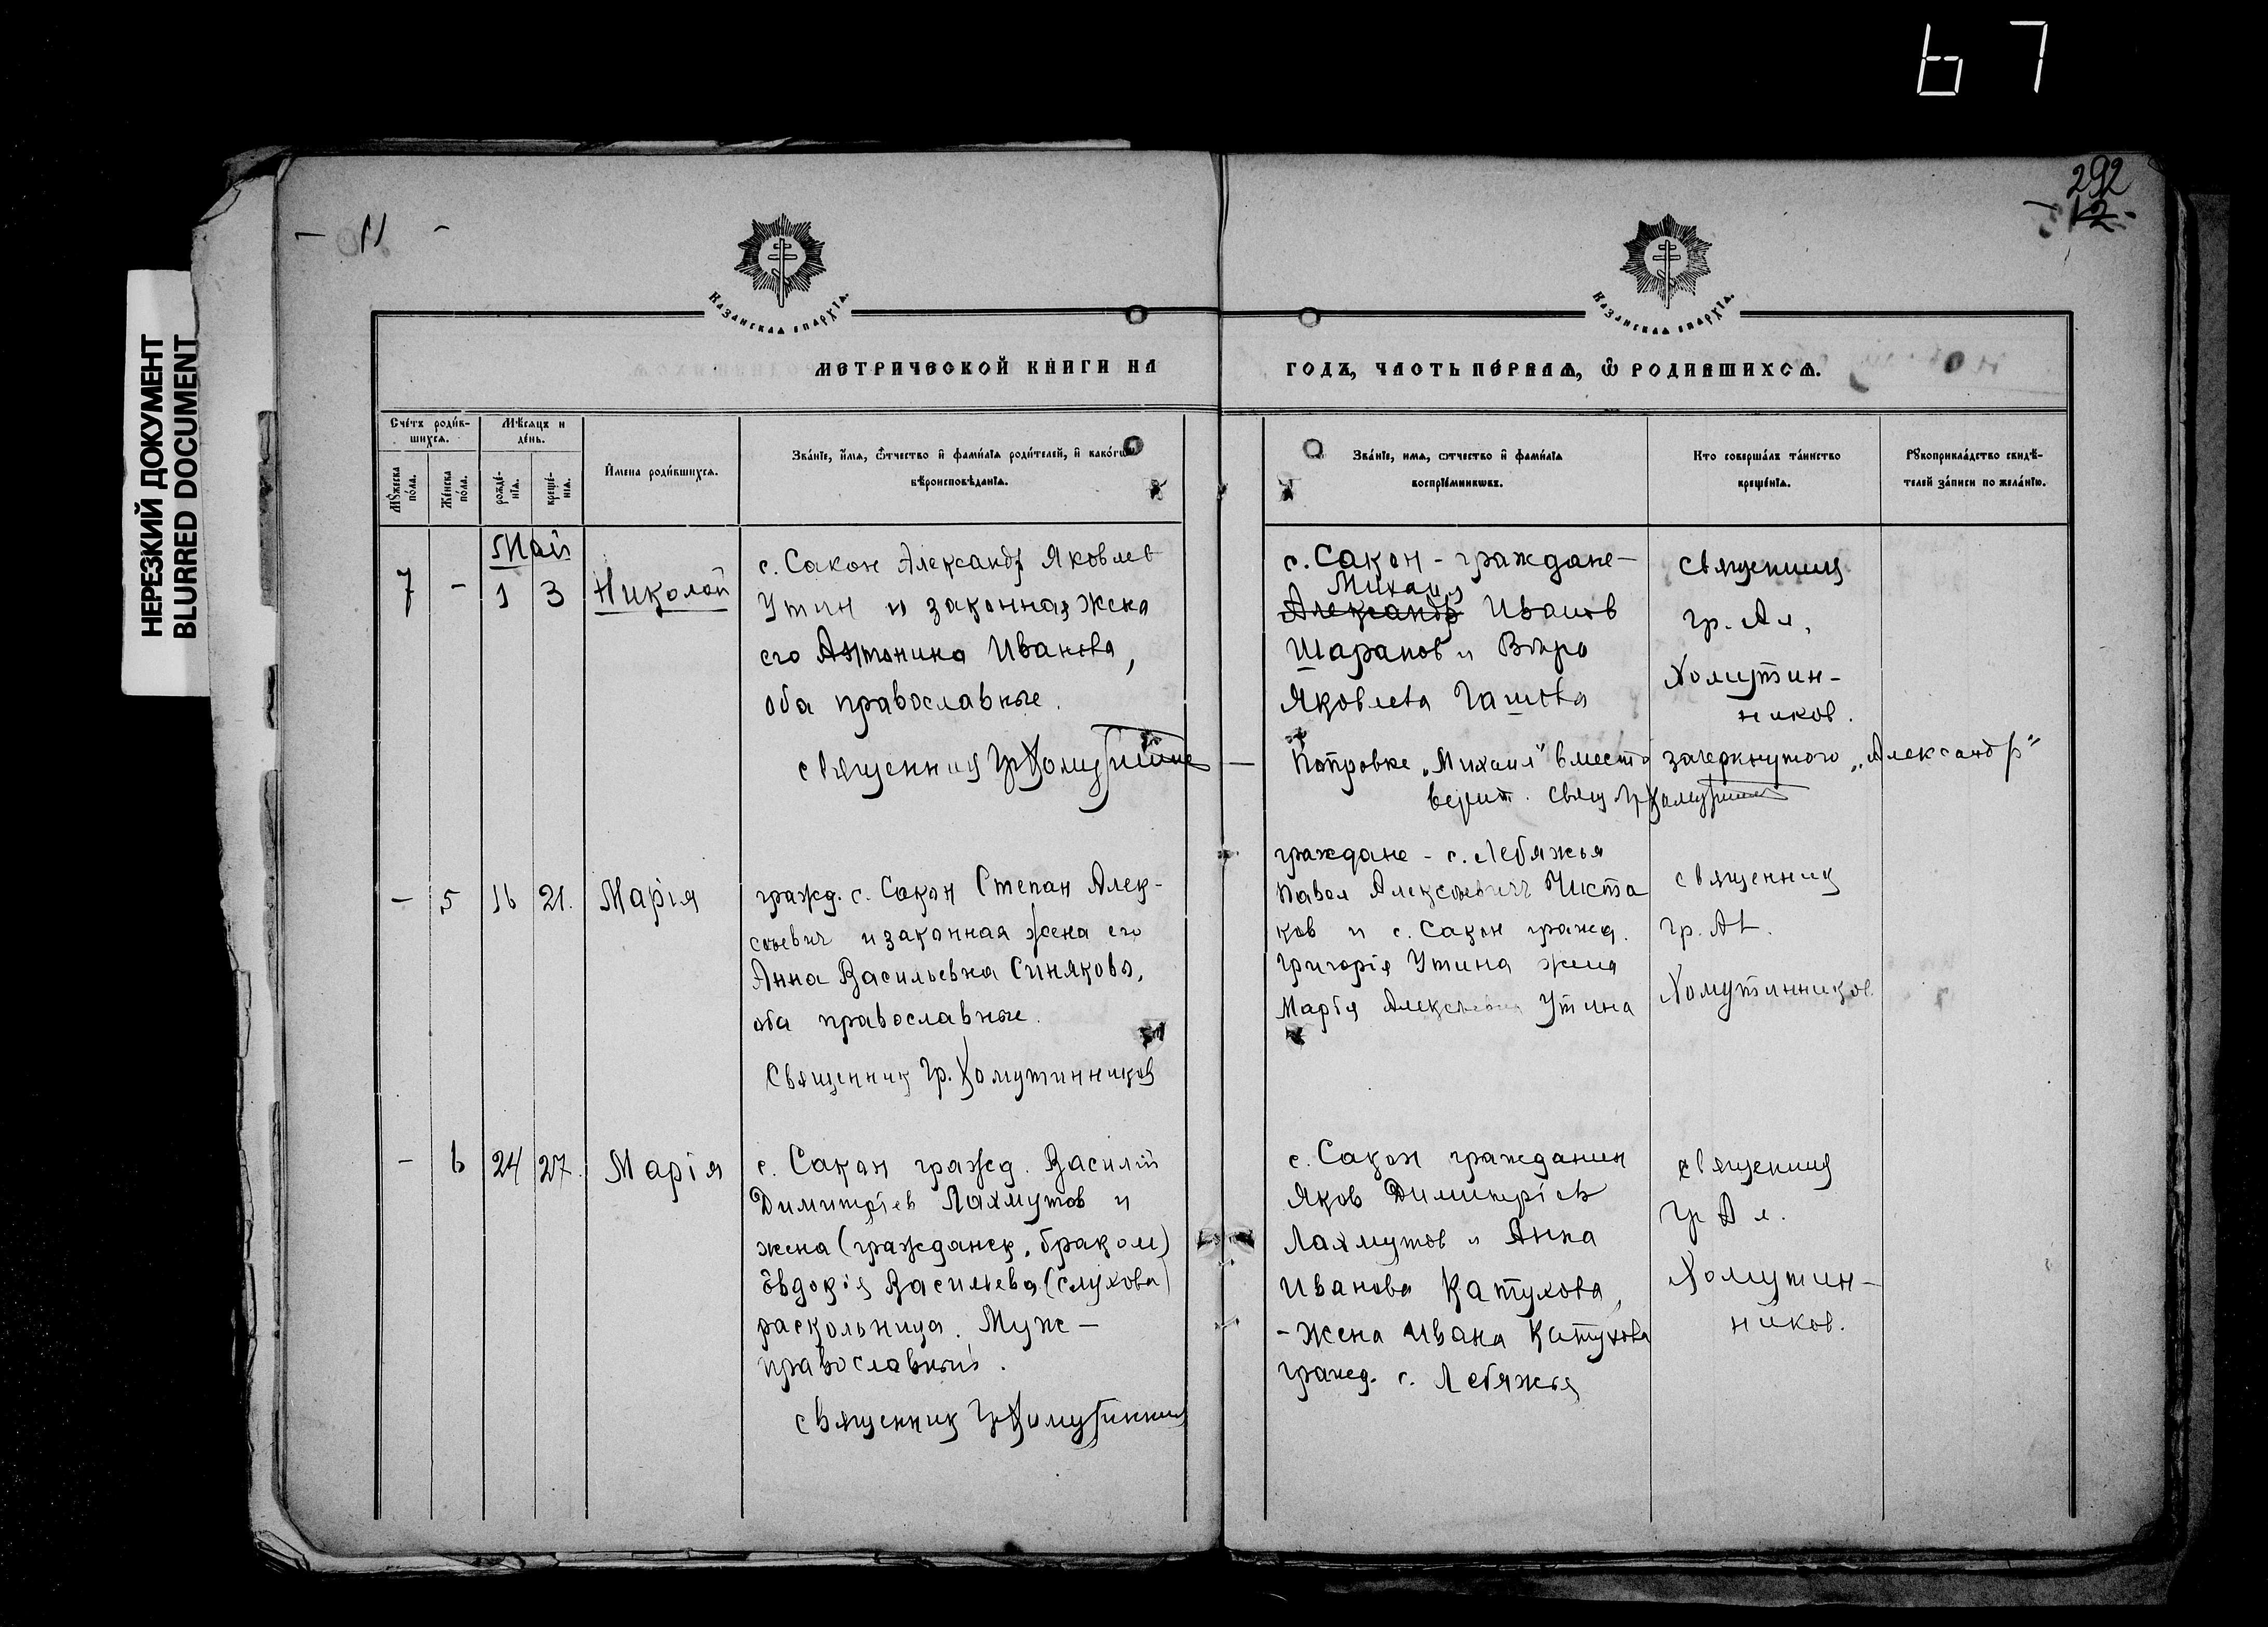 67
НЕРЕЗКИЙ ДОКУМЕНТ
BLURRED DOCUMENT
- 11 -
292
- 12 -
Казанская епархїѧ.
Казанская епархїѧ.
МЕТРИЧЕСКОЙ КНИГИ НА
ГОДЪ, ЧАСТЬ ПЕ́РВАѦ, Ѡ РОДИВШИХСѦ.
Сче́тъ роди́в-
шихсѧ.
Мѣ́сѧцъ и
де́нь.
Мꙋ́жеска
по́ла.
Же́нска
по́ла.
рожде́-
нїѧ.
креще́-
нїѧ.
И́мена роди́вшихсѧ.
Зва́нїе, и́мѧ, ѻ́тчество и҆ фами́лїѧ роди́телей, и҆ како́гѡ
вѣроисповѣ́данїѧ.
Зва́нїе, имѧ, ѻтчество и҆ фами́лїѧ
воспрїе́мникѡвъ.
Кто соверша́лъ та́инство
креще́нїѧ.
Рꙋкоприкла́дство свидѣ́-
телей за́писи по жела́нїю.
Май
7 - 1 3 Николай
с. Сакон Александр Яковлев
Утин и законная жена
его Антонина Иванова,
оба православные.
священник Гр Хомутинник
с. Сакон - граждане -
Михаил
Александр Иванов
Шарапов и Вѣра
Яковлева Гашева
священник
гр. Ал.
Хомутин-
ников.
- Поправке „Михаил" вместо зачеркнутого „Александр"
верит. Свящ Гр Хомутинник
- 5 16 21. Марія
гражд. с. Сакон Степан Алек-
сеевич и законная жена его
Анна Васильевна Синяковы,
оба православные.
Священник Гр. Хомутинников
граждане - с. Лебяжья
Павел Алексеевич Чиста
ков и с. Сакон гражд.
Григорія Утина жена
Марія Алексеевна Утина
священник
гр. Ал.
Хомутинников.
- 6 24 27. Марія
с. Сакон гражд. Василій
Димитріев Лахмутов и
жена (гражданск. браком)
Евдокія Васильева (Слухова)
раскольница. Муж -
православный.
священник Гр Хомутинник
с. Сакон гражданин
Яков Димитріев
Лахмутов и Анна
Иванова Катухова,
- жена Ивана Катухова
гражд. с. Лебяжья
священник
Гр Ал.
Хомутин-
ников.